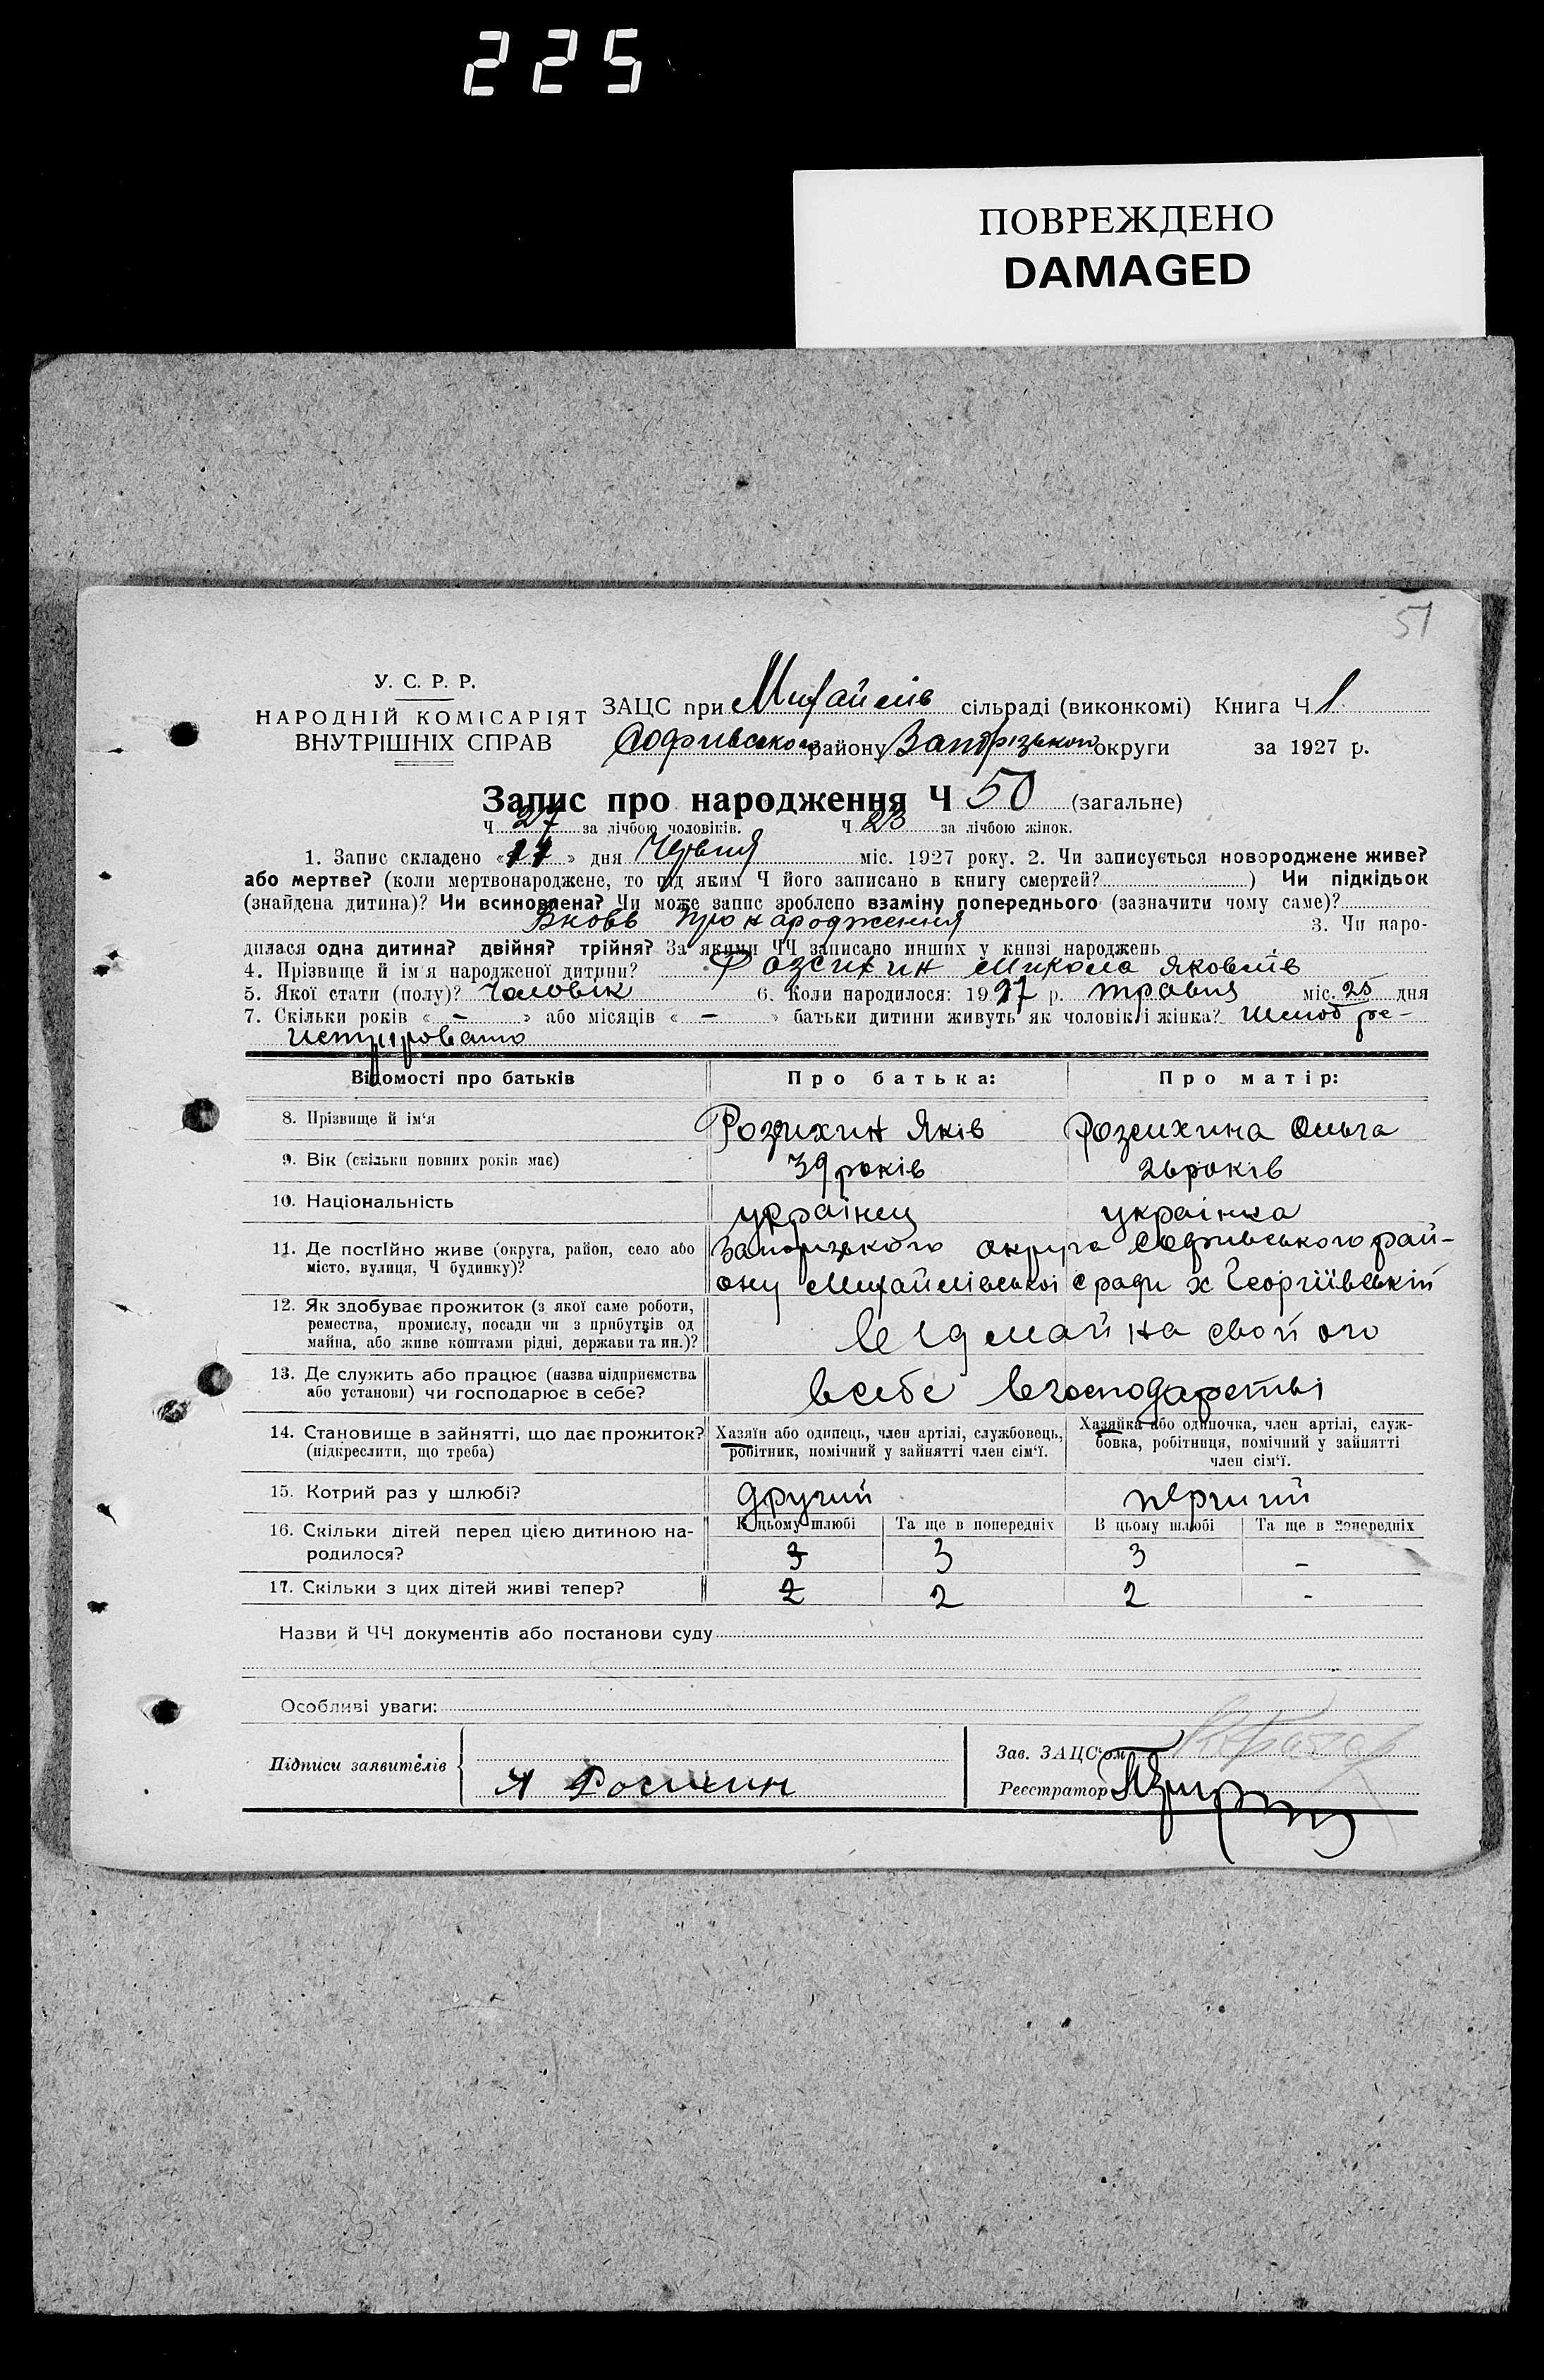 225
ПОВРЕЖДЕНО
DAMAGED
51
У. С. Р. Р.
НАРОДНІЙ КОМІСАРІЯТ
ВНУТРІШНІХ СПРАВ
ЗАЦС при Михайлів сільраді (виконкомі) Книга Ч 1
Софиївського району Запорізької округи за 1927 р.
Запис про народження Ч 50 (загальне)
Ч 27 за лічбою чоловіків. Ч 23 за лічбою жінок.
1. Запис складено « 11 » дня Червня міс. 1927 року. 2. Чи записується новороджене живе?
або мертве? (коли мертвонароджене, то під яким Ч його записано в книгу смертей? ) Чи підкідьок
(знайдена дитина)? Чи всиновлена? Чи може запис зроблено взаміну попереднього (зазначити чому саме)?
Вновь про народження 3. Чи наро-
дилася одна дитина? двійня? трійня? За якими ЧЧ записано инших у книзі народжень
4. Прізвище й ім'я народженої дитини? Розсихин Микола Яковлів
5. Якої стати (полу)? Чоловік 6. Коли народилося: 1927 р. травня міс. 25 дня
7. Скільки років « - » або місяців « - » батьки дитини живуть як чоловік і жінка? шлюб ре-
Відомості про батьків
Про батька:
Про матір:
8. Прізвище й ім'я
Розсихин Яків
Розсихина Ольга
9. Вік (скільки повних років має)
39 років
26 років
10. Національність
українец
українка
11. Де постійно живе (округа, район, село або
місто, вулиця, Ч будинку)?
Запорізького округа Софиївського рай-
ону Михайлівської с ради х Георгіївській
12. Як здобуває прожиток (з якої саме роботи,
ремества, промислу, посади чи з прибутків од
майна, або живе коштами рідні, держави та ин.)?
від майна свойого
13. Де служить або працює (назва підприємства
або установи) чи господарює в себе?
в себе в господарстві
14. Становище в зайнятті, що дає прожиток?
(підкреслити, що треба)
Хазяїн або одинець, член артілі, службовець,
робітник, помічний у зайнятті член сім'ї.
Хазяйка або одиночка, член артілі, служ-
бовка, робітниця, помічний у зайнятті
член сім'ї.
15. Котрий раз у шлюбі?
другий
перший
16. Скільки дітей перед цією дитиною на-
родилося?
В цьому шлюбі
Та ще в попередніх
В цьому шлюбі
Та ще в попередніх
3
3
3
-
17. Скільки з цих дітей живі тепер?
2
2
2
-
Назви й ЧЧ документів або постанови суду
Особливі уваги:
Підписи заявителів
Я Росихин
Зав. ЗАЦС'ом
Реєстратор